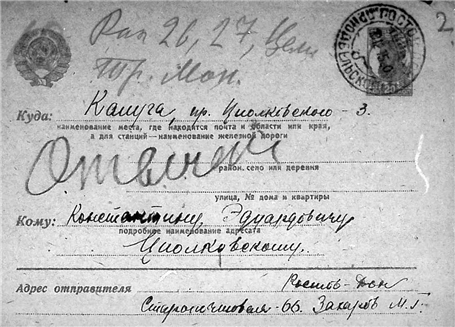 Рак 26, 27, Цели
Тор. Мон.
2.
Куда: Калуга, пр. Циолковского - 3.
наименование места, где находится почта и области или края,
а для станций—наименование железной дороги
Отвечено
район, село или деревня
улица, № дома и квартиры
Кому: Константину, Эдуардовичу
подробное наименование адресата
Циолковскому.
Адрес отправителя Ростов-Дон
Старопочтовая-66. Захаров М.